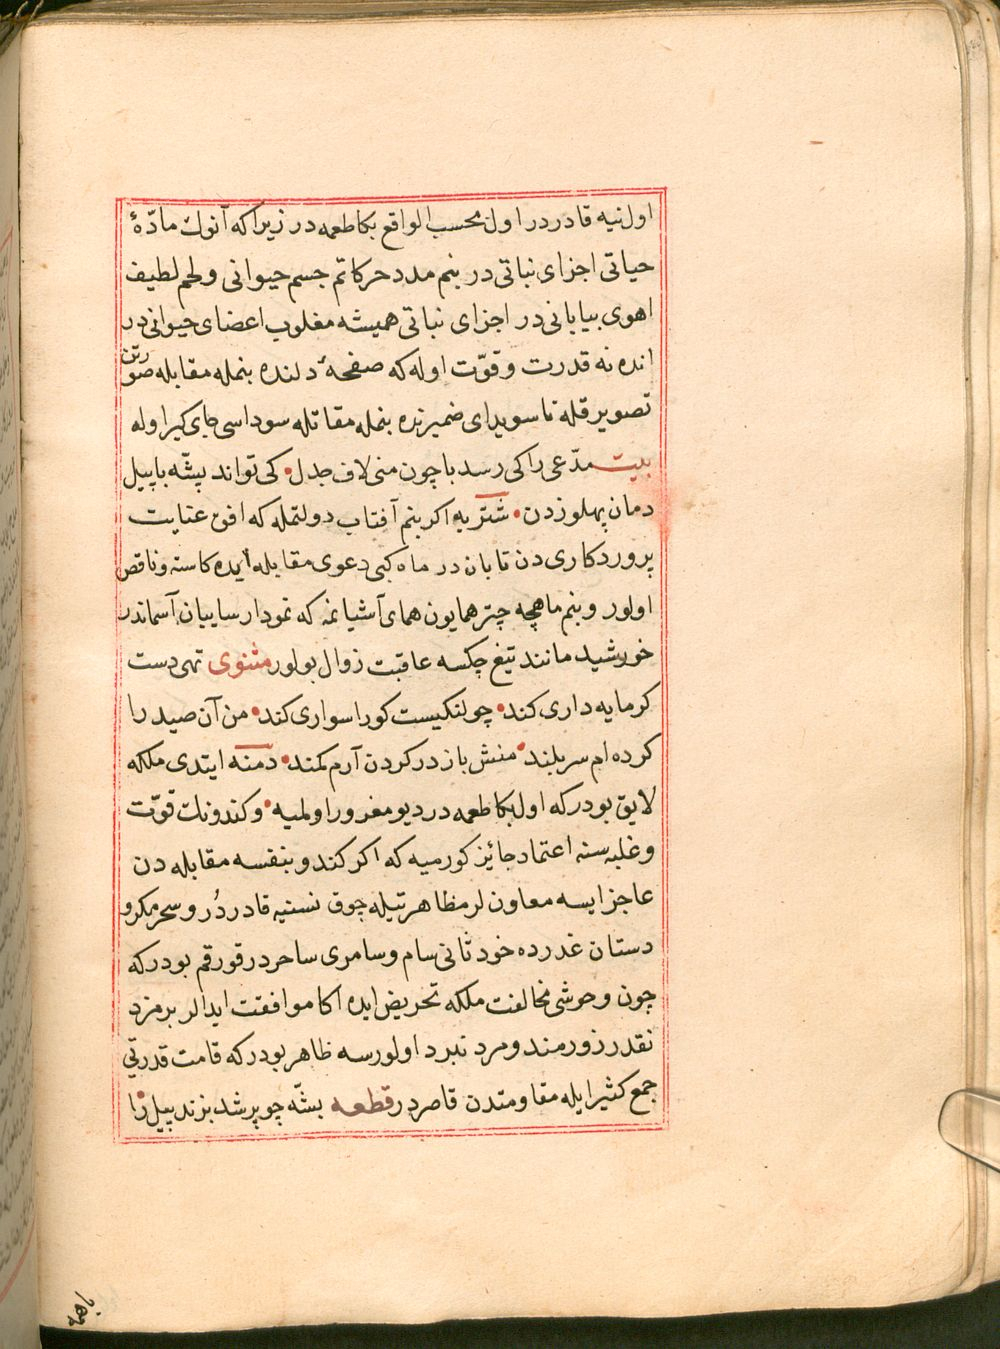 اولنیه قادر در اول بحسب الواقع بكا طعمه در زیرا كه آنوك مادّهٔ
حیاتی اجزای نباتی در بنم مدد حركاتم جسم حیوانی و لحم لطیف
اهوی بیابانی در اجزای نباتی همیشه مغلوب اعضای حیوانی در
انده نه قدرت و قوّت اوله كه صفحهٔ دلنده بنمله مقابله صورتن
تصویر قله تا سویدای ضمیرنده بنمله مقاتله سوداسی جای كیر اوله
بیت مدّعی را كی رسد با چون منی لاف جدل • كی تواند پشّه با پیل
دمان پهلو زدن • شتربه اكر بنم آفتاب دولتمله كه افق عنایت
پروردكاری دن تابان در ماه كبی دعوی مقابله ایده كاسته و ناقص
اولور و بنم ماهچه چتر همایون همای آشیانمه كه نمودار سایبان آسماندر
خورشید مانند تیغ چكسه عاقبت زوال بولور مثنوی تهی دست
كرمایه داری كند • چو لنكیست كو راسواری كند • من آن صید را
كرده ام سربلند • منش باز در كردن آرم كمند • دمنه ایتدی ملكه
لایق بودر كه اول بكا طعمه در دیو مغرور اولمیه • و كندونك قوّت
و غلبه سنه اعتماد جائز كورمیه كه اكر كندو بنفسه مقابله دن
عاجز ایسه معاونلر مظاهرتیله چوق نسنیه قادردُر و سحر مكر و
دستان غدرده خود ثانی سام و سامری ساحردر قورقم بودر كه
چون وحوشی مخالفت ملكه تحریض ایده اكا موافقت ایدالر بر مزد
نقدر زورمند و مرد نبرد اولورسه ظاهر بودر كه قامت قدرتی
جمع كثیر ایله مقاومتدن قاصر در قطعه پشّه چو پر شد بزند پیل را
با همه